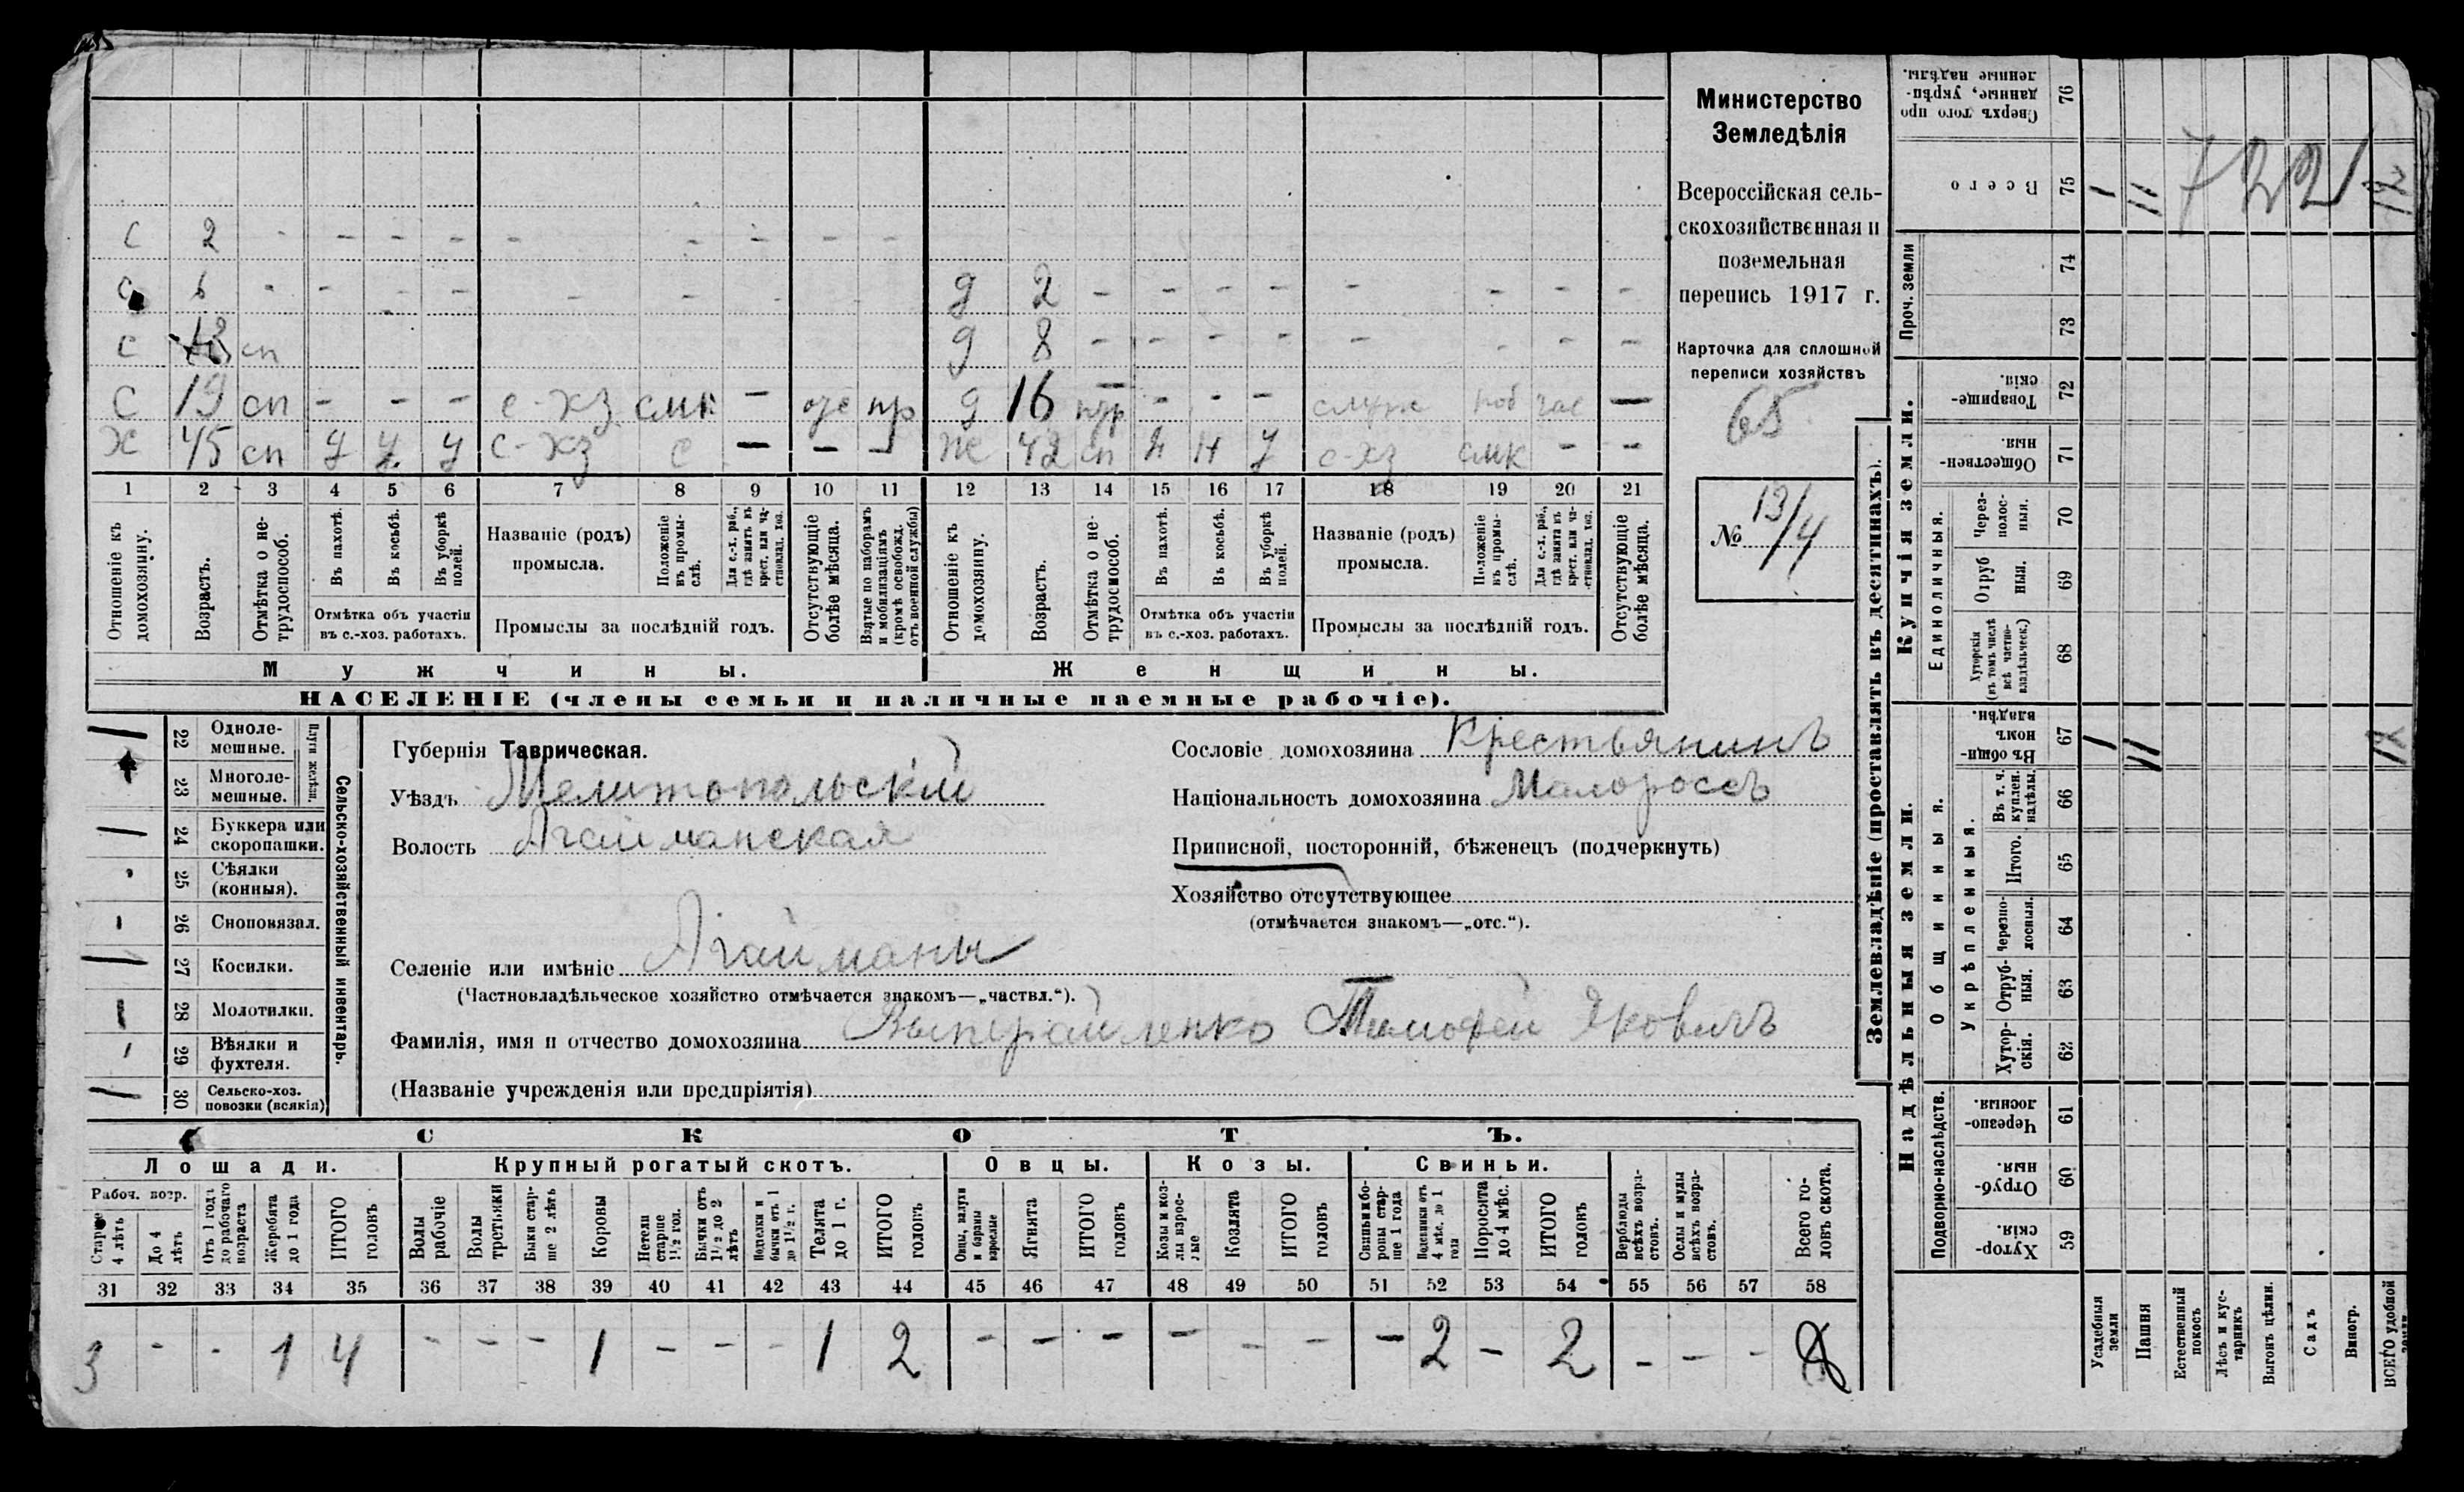 С 2 - - - - - - - - -
С 6 - - - - - - - -
д 2 - - - - - - - - -
С 13 сп
д 8 - - - - - - - - -
С 19 сп - - - с-хз смк - отс пр
д 16 - - - служ час —
Х 45 сп у у у с-хз с — — —
ж 42 сп н н у с-хз смк - -
1 2 3 4 5 6 7 8 9 10 11 12 13 14 15 16 17 18 19 20 21
Отношеніе къ домохозяину.
Возрастъ.
Отмѣтка о нетрудоспособ.
Въ пахотѣ.
Въ косьбѣ.
Въ уборкѣ полей.
Отмѣтка объ участіи въ с.-хоз. работахъ.
Названіе (родъ) промысла.
Положеніе въ промыслѣ.
Для с.-х. раб., гдѣ занятъ въ крест. или частновлад. хоз.
Промыслы за послѣдній годъ.
Отсутствующіе болѣе мѣсяца.
Взятые по наборамъ и мобилизаціямъ (кромѣ освобожд. отъ военной службы)
Отношеніе къ домохозяину.
Возрастъ.
Отмѣтка о нетрудоспособ.
Въ пахотѣ.
Въ косьбѣ.
Въ уборкѣ полей.
Отмѣтка объ участіи въ с.-хоз. работахъ.
Названіе (родъ) промысла.
Положеніе въ промыслѣ.
Для с.-х. раб., гдѣ занята въ крест. или частновлад. хоз.
Промыслы за послѣдній годъ.
Отсутствующіе болѣе мѣсяца.
Мужчины.
Женщины.
НАСЕЛЕНІЕ (члены семьи и наличные наемные рабочіе).
Министерство
Земледѣлія
Всероссійская сель-
скохозяйственная и
поземельная
перепись 1917 г.
Карточка для сплошной
переписи хозяйствъ
65
№ 13/4
22 Одноле-
мешные.
23 Многоле-
мешные.
Плуги желѣзн.
24 Буккера или
скоропашки.
25 Сѣялки
(конныя).
26 Сноповязал.
27 Косилки.
28 Молотилки.
29 Вѣялки и
фухтеля.
30 Сельско-хоз.
повозки (всякія)
Сельско-хозяйственный инвентарь.
Губернія Таврическая.
Уѣздъ Мелитопольскій
Волость Агайманская
Селеніе или имѣніе Агайманы
(Частновладѣльческое хозяйство отмѣчается знакомъ—„частвл.“).
Фамилія, имя и отчество домохозяина Тимофей Яковичъ
(Названіе учрежденія или предпріятія)
Сословіе домохозяина Крестьянинъ
Національность домохозяина Малороссъ
Приписной, посторонній, бѣженецъ (подчеркнуть)
Хозяйство отсутствующее
(отмѣчается знакомъ—„отс.“).
СКОТЪ.
Лошади.
Крупный рогатый скотъ.
Овцы.
Козы.
Свиньи.
Рабоч. возр.
Старше 4 лѣтъ
До 4 лѣтъ
Отъ 1 года до рабочаго возраста
Жеребята до 1 года
ИТОГО головъ
Волы рабочіе
Волы третьяки
Быки старше 2 лѣтъ
Коровы
Нетели старше 1½ год.
Бычки отъ 1½ до 2 лѣтъ
Подтелки и бычки отъ 1 до 1½ г.
Телята до 1 г.
ИТОГО головъ
Овцы, валухи и бараны взрослые
Ягнята
ИТОГО головъ
Козы и козлы взрослые
Козлята
ИТОГО головъ
Свиньи и боровы старше 1 года
Подсвинки отъ 4 мѣс. до 1 года
Поросята до 4 мѣс.
ИТОГО головъ
Верблюды всѣхъ возрастовъ.
Ослы и мулы всѣхъ возрастовъ.
Всего головъ скота.
31 32 33 34 35 36 37 38 39 40 41 42 43 44 45 46 47 48 49 50 51 52 53 54 55 56 57 58
3 - - 1 4 - - - 1 - - - 1 2 - - - - - - - 2 - 2 - - - 8
Землевладѣніе (проставлять въ десятинахъ).
Купчія земли.
Надѣльныя земли.
Сверхъ того проданные, укрѣпленные надѣлы. 76
Всего 75
Проч. земли 74 73
Товарищескія. 72
Общественныя. 71
Единоличныя.
Черезполосныя. 70
Отрубныя. 69
Хуторскія (въ томъ числѣ всѣ частновладѣльческ.) 68
Общинныя.
Въ общинномъ владѣн. 67
Укрѣпленныя.
Въ т. ч. куплен. надѣлы. 66
Итого. 65
Черезполосныя. 64
Отрубныя. 63
Хуторскія. 62
Подворно-наслѣдств.
Черезполосныя. 61
Отрубныя. 60
Хуторскія. 59
Усадебныя земли
Пашня
Естественный покосъ
Лѣсъ и кустарникъ
Выгонъ цѣлин.
Садъ
Виногр.
ВСЕГО удобной земли
1 11 12
1 11 12